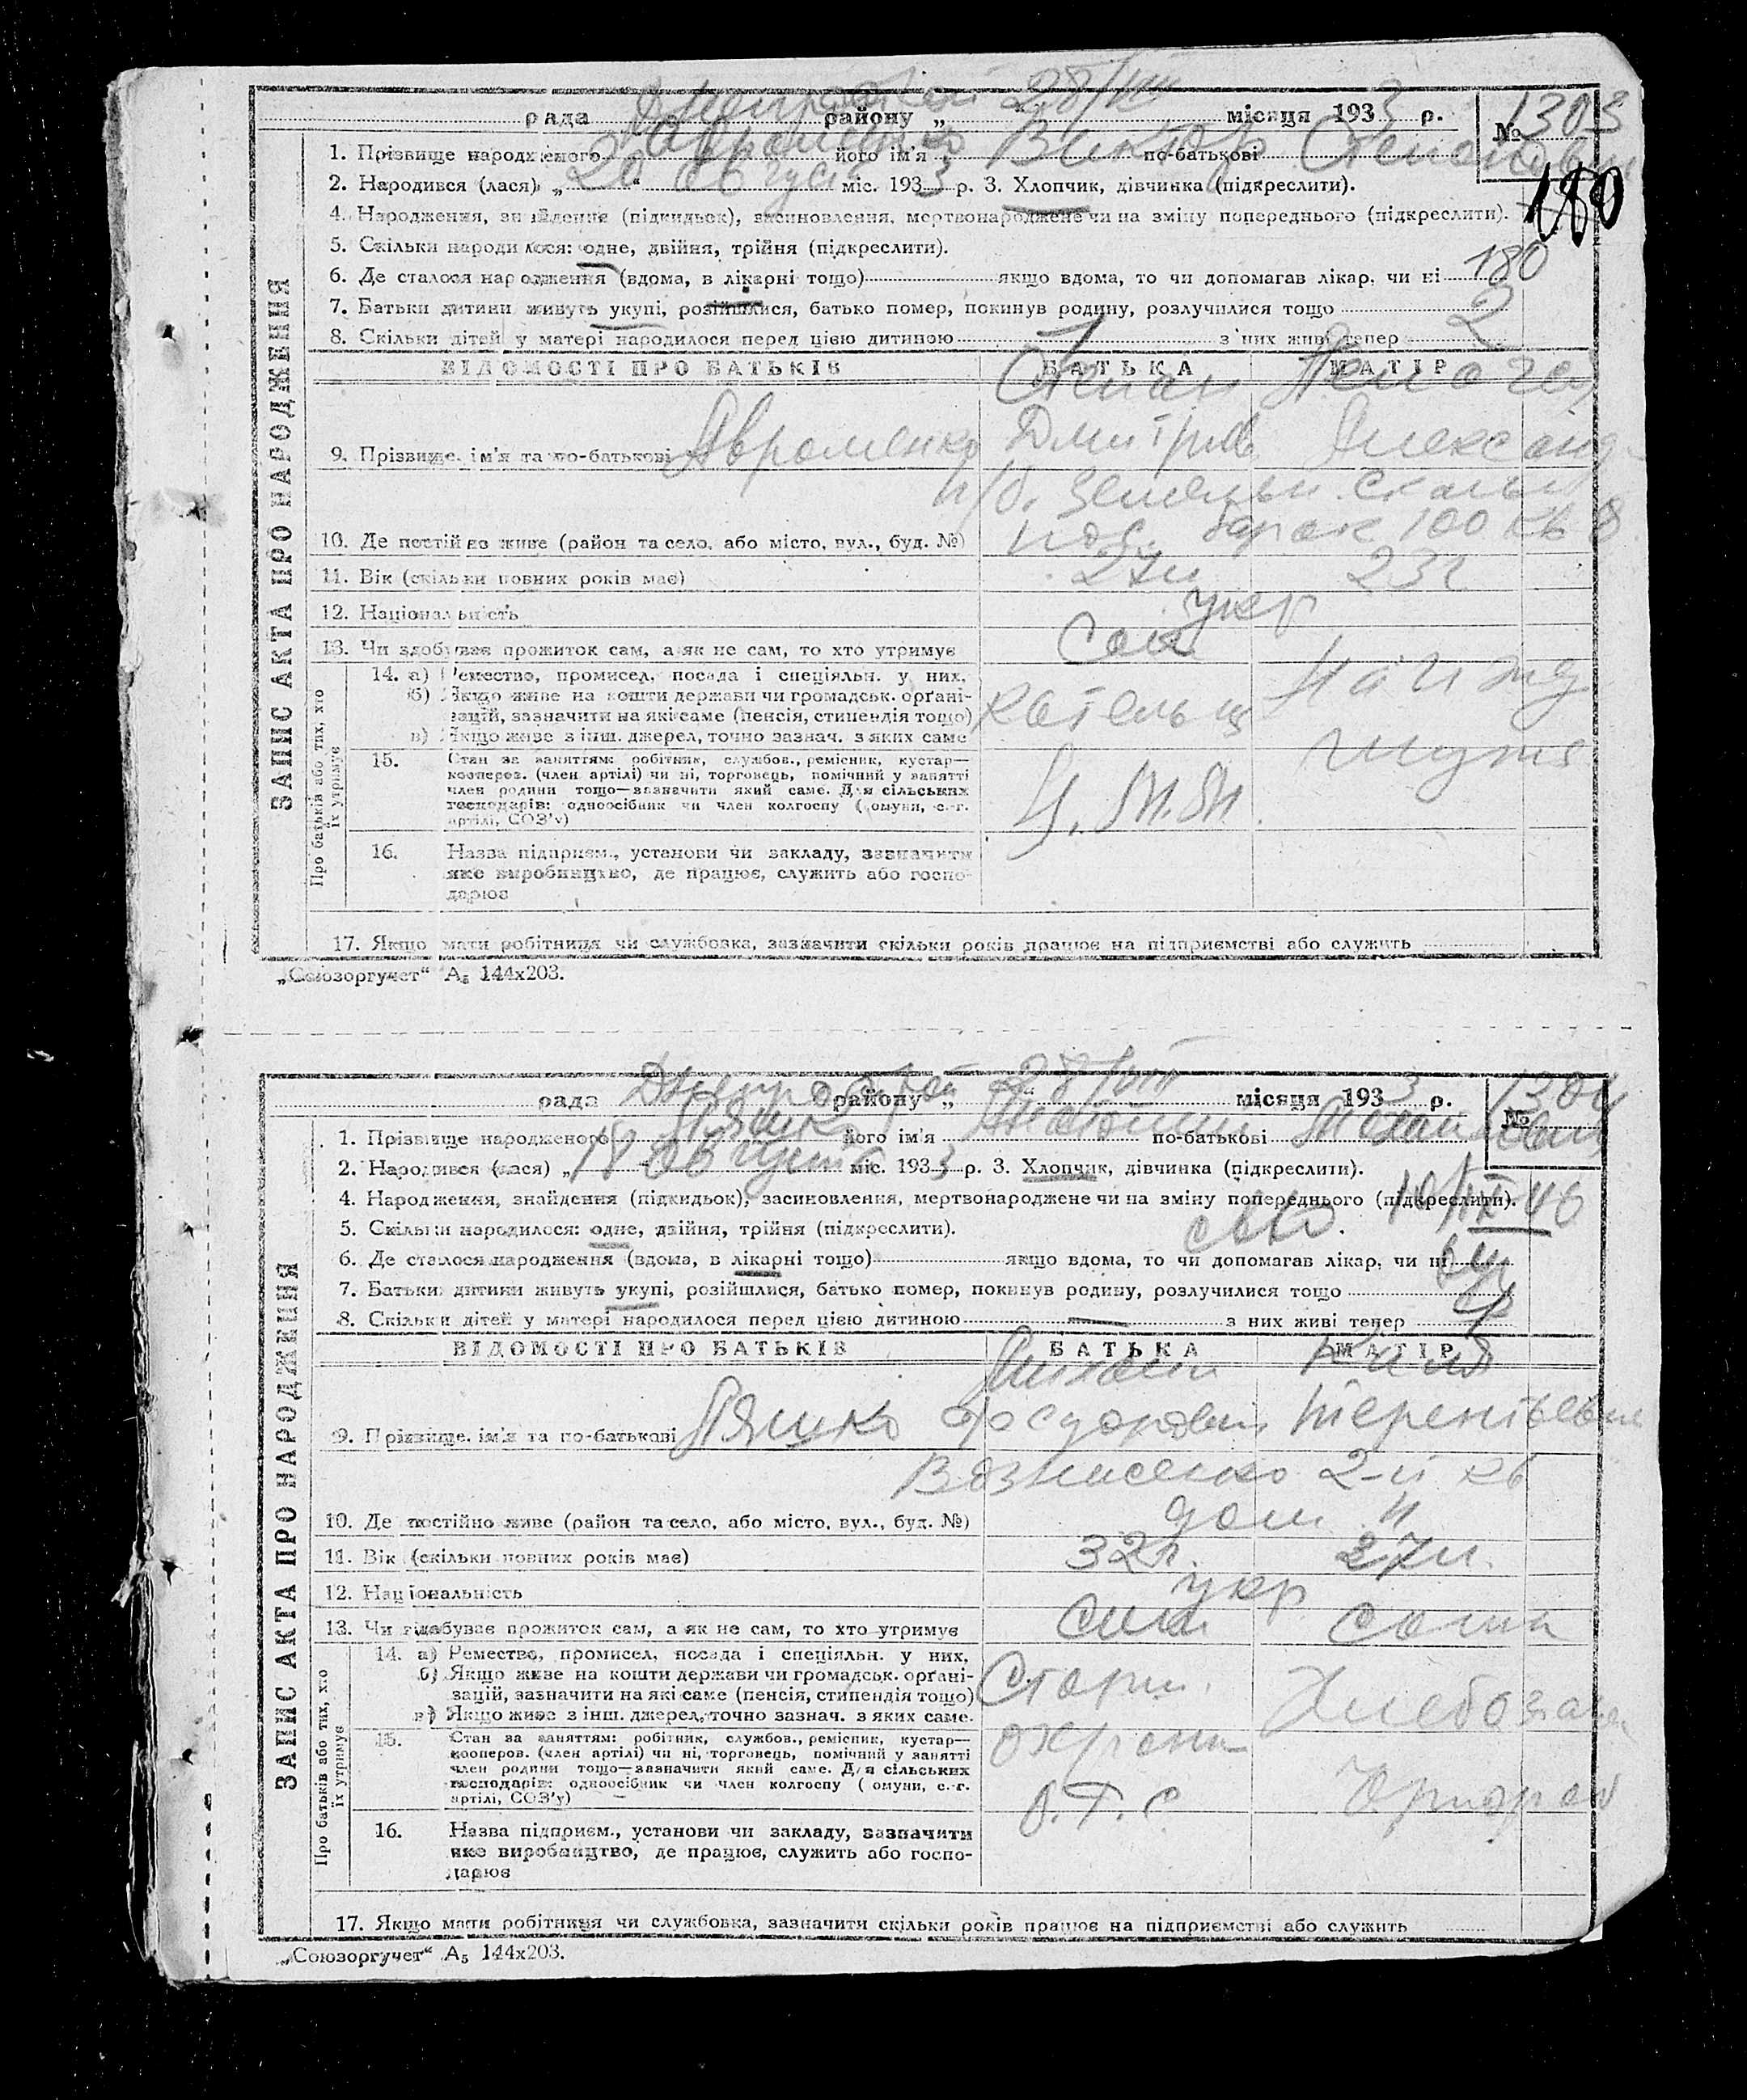 28/VIII
рада району „ “ місяця 1933 р. № 1303
1. Прізвище народженого його ім'я Виктор по-батькові Степанович
2. Народився (лася) „20“ августа міс. 1933 р. 3. Хлопчик, дівчинка (підкреслити).
180
4. Народження, знайдення (підкидьок), засиновлення, мертвонароджене чи на зміну попереднього (підкреслити).
5. Скільки народилося: одне, двійня, трійня (підкреслити).
6. Де сталося народження (вдома, в лікарні тощо) якщо вдома, то чи допомагав лікар, чи ні 180
7. Батьки дитини живуть укупі, розійшлися, батько помер, покинув родину, розлучилися тощо
8. Скільки дітей у матері народилося перед цією дитиною 1 з них живі тепер 2
ЗАПИС АКТА ПРО НАРОДЖЕННЯ
ВІДОМОСТІ ПРО БАТЬКІВ БАТЬКА МАТІР
Степан
9. Прізвище, ім'я та по-батькові Авраменко Дмитрив Александ
10. Де постійно живе (район та село, або місто, вул., буд. №) пос. барак 100 кв 8
11. Вік (скільки повних років має) 27 л 23 г
12. Національність укр
13. Чи здобуває прожиток сам, а як не сам, то хто утримує сам
Про батьків або тих, хто їх утримує
14. а) Ремество, промисел, посада і спеціяльн. у них.
б) Якщо живе на кошти держави чи громадськ. орґані-
зацій, зазначити на які саме (пенсія, стипендія тощо)
в) Якщо живе з інш. джерел, точно зазнач. з яких саме
мужа
15. Стан за заняттям: робітник, службов., ремісник, кустар—
кооперов. (член артілі) чи ні, торговець, помічний у занятті
член родини тощо—зазначити який саме. Для сільських
господарів: одноосібник чи член колгоспу (комуни, с.-г.
артілі, СОЗ'у)
16. Назва підприєм., установи чи закладу, зазначити
яке виробництво, де працює, служить або госпо-
дарює
17. Якщо мати робітниця чи службовка, зазначити скільки років працює на підприємстві або служить
„Союзоргучет“ А₅ 144х203.
28/VIII
рада району „ “ місяця 1933 р. № 1304
1. Прізвище народженого Ляшко його ім'я по-батькові
2. Народився (лася) „18“ августа міс. 1933 р. 3. Хлопчик, дівчинка (підкреслити).
4. Народження, знайдення (підкидьок), засиновлення, мертвонароджене чи на зміну попереднього (підкреслити).
10/IX 46
5. Скільки народилося: одне, двійня, трійня (підкреслити).
6. Де сталося народження (вдома, в лікарні тощо) якщо вдома, то чи допомагав лікар, чи ні
7. Батьки дитини живуть укупі, розійшлися, батько помер, покинув родину, розлучилися тощо
8. Скільки дітей у матері народилося перед цією дитиною — з них живі тепер
ЗАПИС АКТА ПРО НАРОДЖЕННЯ
ВІДОМОСТІ ПРО БАТЬКІВ БАТЬКА МАТІР
9. Прізвище, ім'я та по-батькові Ляшко Терентьевна
Вознесенко 2-й кв
10. Де постійно живе (район та село, або місто, вул., буд. №) дом
11. Вік (скільки повних років має) 32 л. 27 л.
12. Національність укр
13. Чи здобуває прожиток сам, а як не сам, то хто утримує сам сама
Про батьків або тих, хто їх утримує
14. а) Ремество, промисел, посада і спеціяльн. у них.
б) Якщо живе на кошти держави чи громадськ. орґані-
зацій, зазначити на які саме (пенсія, стипендія тощо)
в) Якщо живе з інш. джерел, точно зазнач. з яких саме.
Старш.
15. Стан за заняттям: робітник, службов., ремісник, кустар—
кооперов. (член артілі) чи ні, торговець, помічний у занятті
член родини тощо—зазначити який саме. Для сільських
господарів: одноосібник чи член колгоспу (комуни, с.-г.
артілі, СОЗ'у)
охраны
16. Назва підприєм., установи чи закладу, зазначити
яке виробництво, де працює, служить або госпо-
дарює
17. Якщо мати робітниця чи службовка, зазначити скільки років працює на підприємстві або служить
„Союзоргучет“ А₅ 144х203.